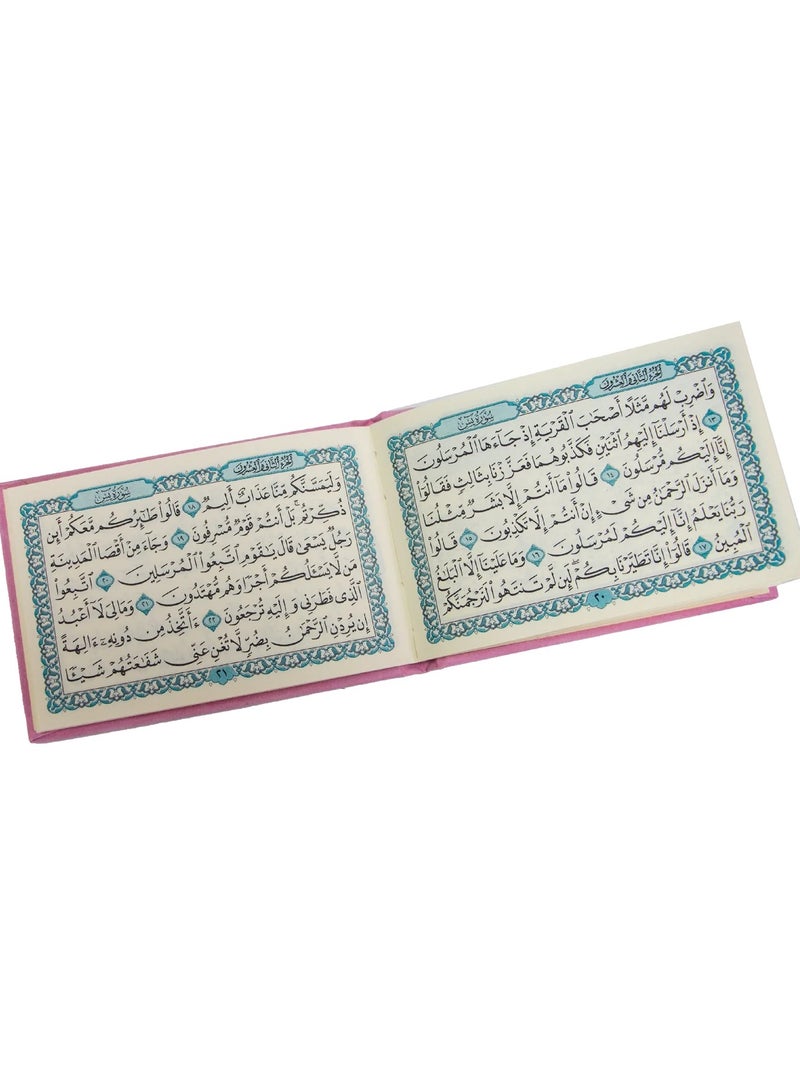 الجزء الثاني والعشرون
سورة يس
وَٱضۡرِبۡ لَهُم مَّثَلًا أَصۡحَٰبَ ٱلۡقَرۡيَةِ إِذۡ جَآءَهَا ٱلۡمُرۡسَلُونَ
١٣ إِذۡ أَرۡسَلۡنَآ إِلَيۡهِمُ ٱثۡنَيۡنِ فَكَذَّبُوهُمَا فَعَزَّزۡنَا بِثَالِثٖ فَقَالُوٓاْ
إِنَّآ إِلَيۡكُم مُّرۡسَلُونَ ١٤ قَالُواْ مَآ أَنتُمۡ إِلَّا بَشَرٞ مِّثۡلُنَا
وَمَآ أَنزَلَ ٱلرَّحۡمَٰنُ مِن شَيۡءٍ إِنۡ أَنتُمۡ إِلَّا تَكۡذِبُونَ ١٥ قَالُواْ
رَبُّنَا يَعۡلَمُ إِنَّآ إِلَيۡكُمۡ لَمُرۡسَلُونَ ١٦ وَمَا عَلَيۡنَآ إِلَّا ٱلۡبَلَٰغُ
ٱلۡمُبِينُ ١٧ قَالُوٓاْ إِنَّا تَطَيَّرۡنَا بِكُمۡۖ لَئِن لَّمۡ تَنتَهُواْ لَنَرۡجُمَنَّكُمۡ
٢٠
الجزء الثاني والعشرون
سورة يس
وَلَيَمَسَّنَّكُم مِّنَّا عَذَابٌ أَلِيمٞ ١٨ قَالُواْ طَٰٓئِرُكُم مَّعَكُمۡ أَئِن
ذُكِّرۡتُمۚ بَلۡ أَنتُمۡ قَوۡمٞ مُّسۡرِفُونَ ١٩ وَجَآءَ مِنۡ أَقۡصَا ٱلۡمَدِينَةِ
رَجُلٞ يَسۡعَىٰ قَالَ يَٰقَوۡمِ ٱتَّبِعُواْ ٱلۡمُرۡسَلِينَ ٢٠ ٱتَّبِعُواْ
مَن لَّا يَسۡـَٔلُكُمۡ أَجۡرٗا وَهُم مُّهۡتَدُونَ ٢١ وَمَالِيَ لَآ أَعۡبُدُ
ٱلَّذِي فَطَرَنِي وَإِلَيۡهِ تُرۡجَعُونَ ٢٢ ءَأَتَّخِذُ مِن دُونِهِۦٓ ءَالِهَةً
إِن يُرِدۡنِ ٱلرَّحۡمَٰنُ بِضُرّٖ لَّا تُغۡنِ عَنِّي شَفَٰعَتُهُمۡ شَيۡـٔٗا
٢١